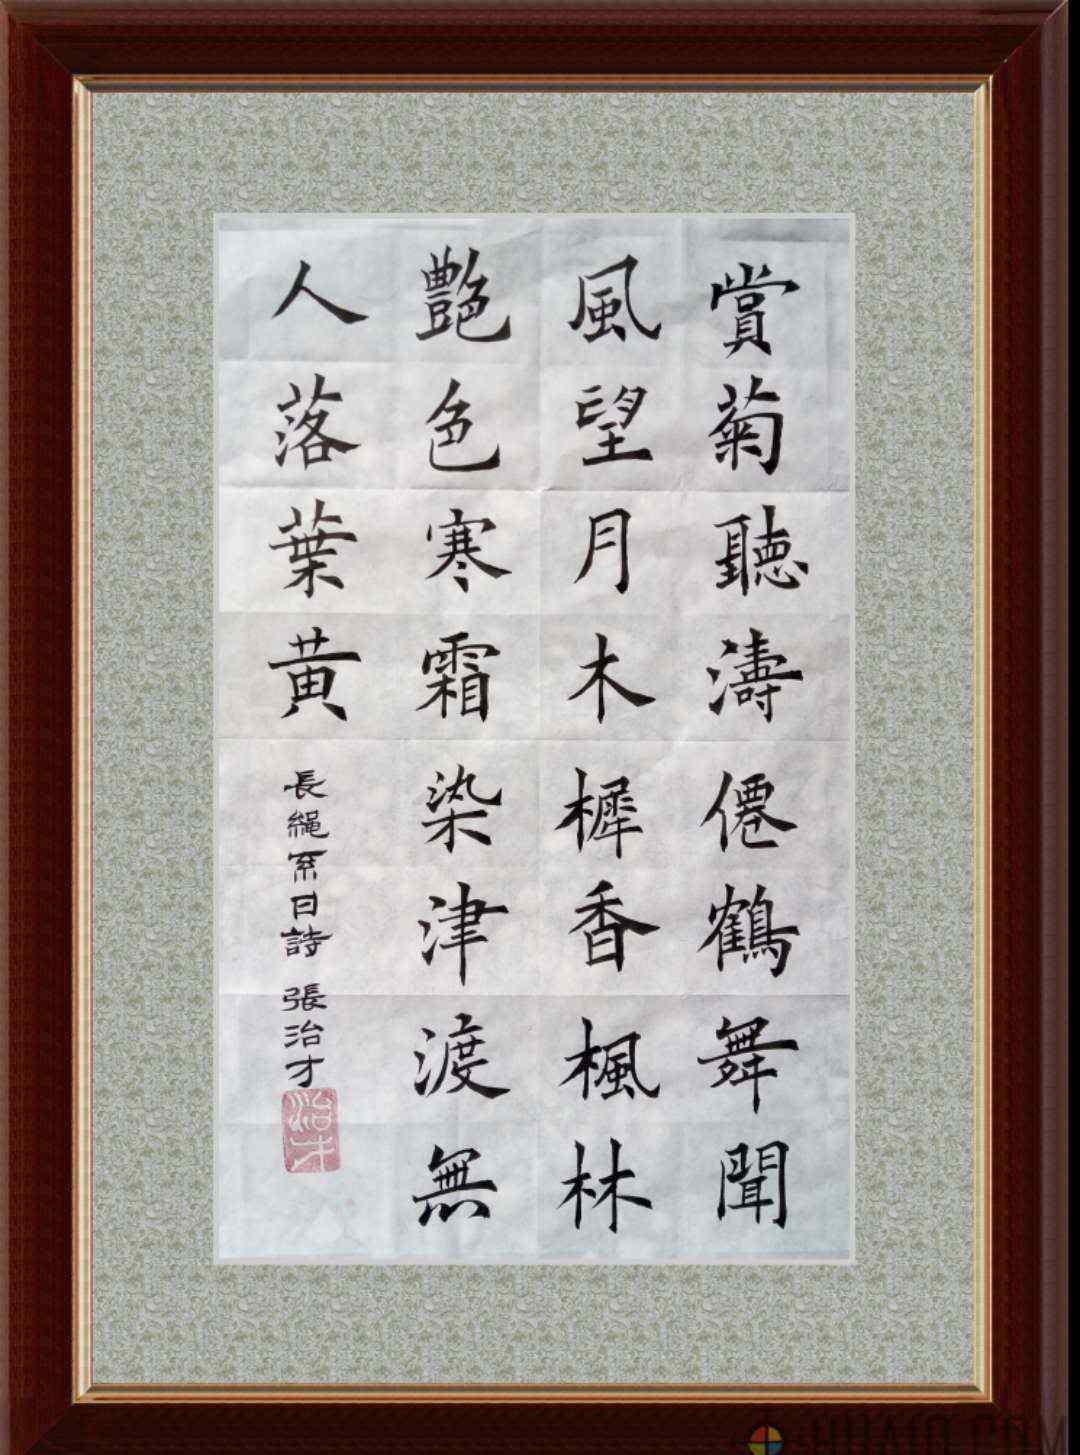 賞菊聽濤僊鶴舞聞
風望月木樨香楓林
艷色寒霜染津渡無
人落葉黃
長繩系日詩 張治才
治才